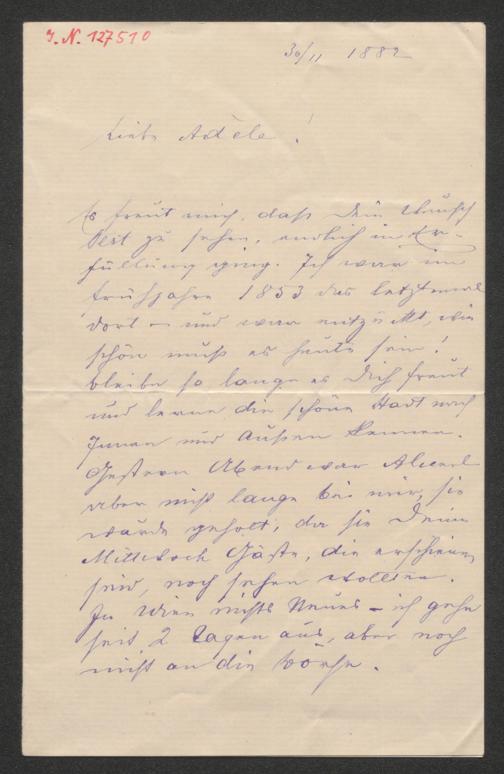 J. N. 127510
30/11 1882
Liebe Adele!
Es freut mich, daß Dein Wunsch
Pest zu sehen, endlich in Er-
füllung ging. Ich war im
Frühjahre 1853 das letztemal
dort – und war entzückt, wie
schön muß es heute sein!
Bleibe so lange es Dich freut
und lerne die schöne Stadt nach
Innen und Außen kennen.
Gestern Abend war
aber nicht lange bei mir, sie
wurde geholt, da sie Deine
Mittwoch Gäste, die erschienen
sind, noch sehen wollten.
In Wien nichts Neues – ich gehe
seit 2 Tagen aus, aber noch
nicht an die Börse.